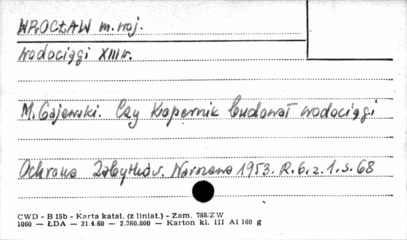 WROCŁAW m. woj.
Wodociągi XIII w.
M. Gajewski. Czy Kopernik budował wodociągi
Ochrona Zabytków. Warszawa 1953. R. 6. z. 1. s. 68
CWD - B 15b - Karta katal. (z liniat.) - Zam. 788/ZW
1060 — ŁDA — 21.4.60 — 2.360.000 — Karton kl. III A1 160 g